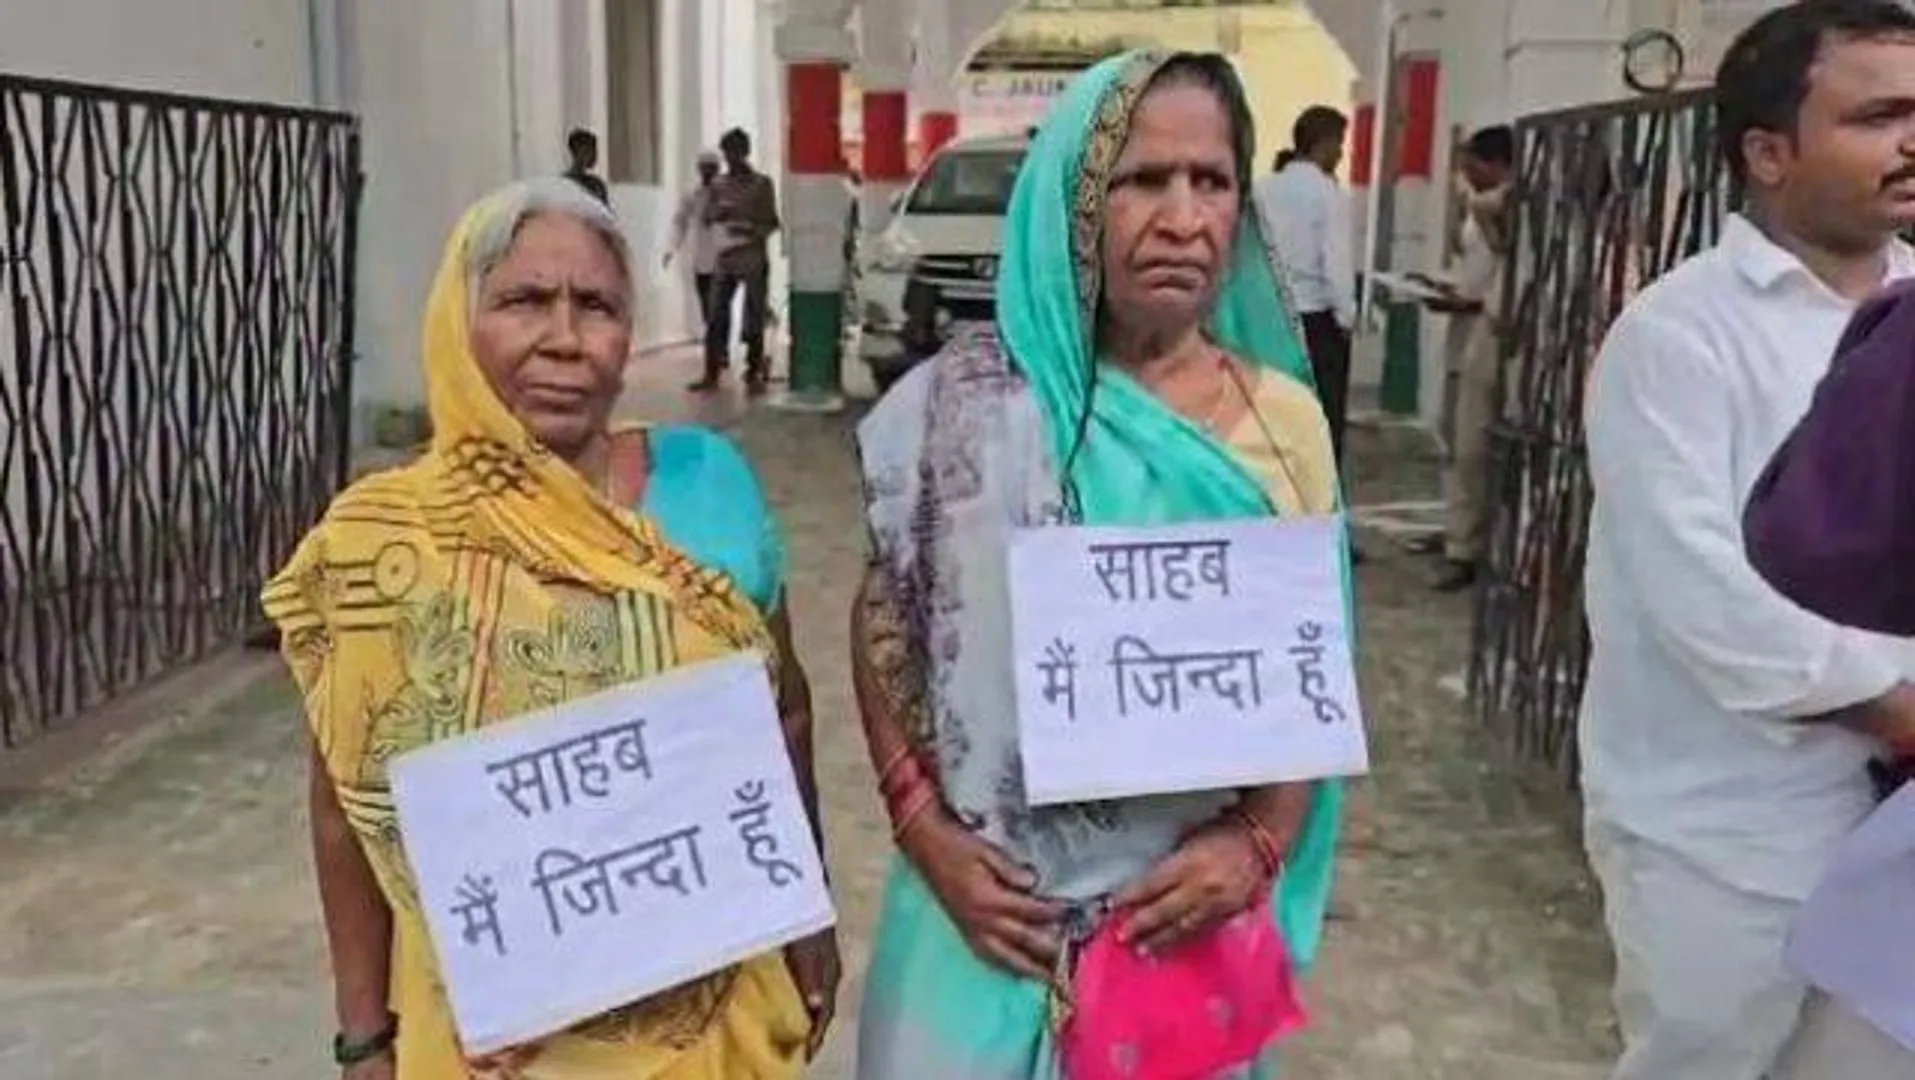 C. JAU
साहब
मैं जिन्दा हूँ
साहब
मैं जिन्दा हूँ